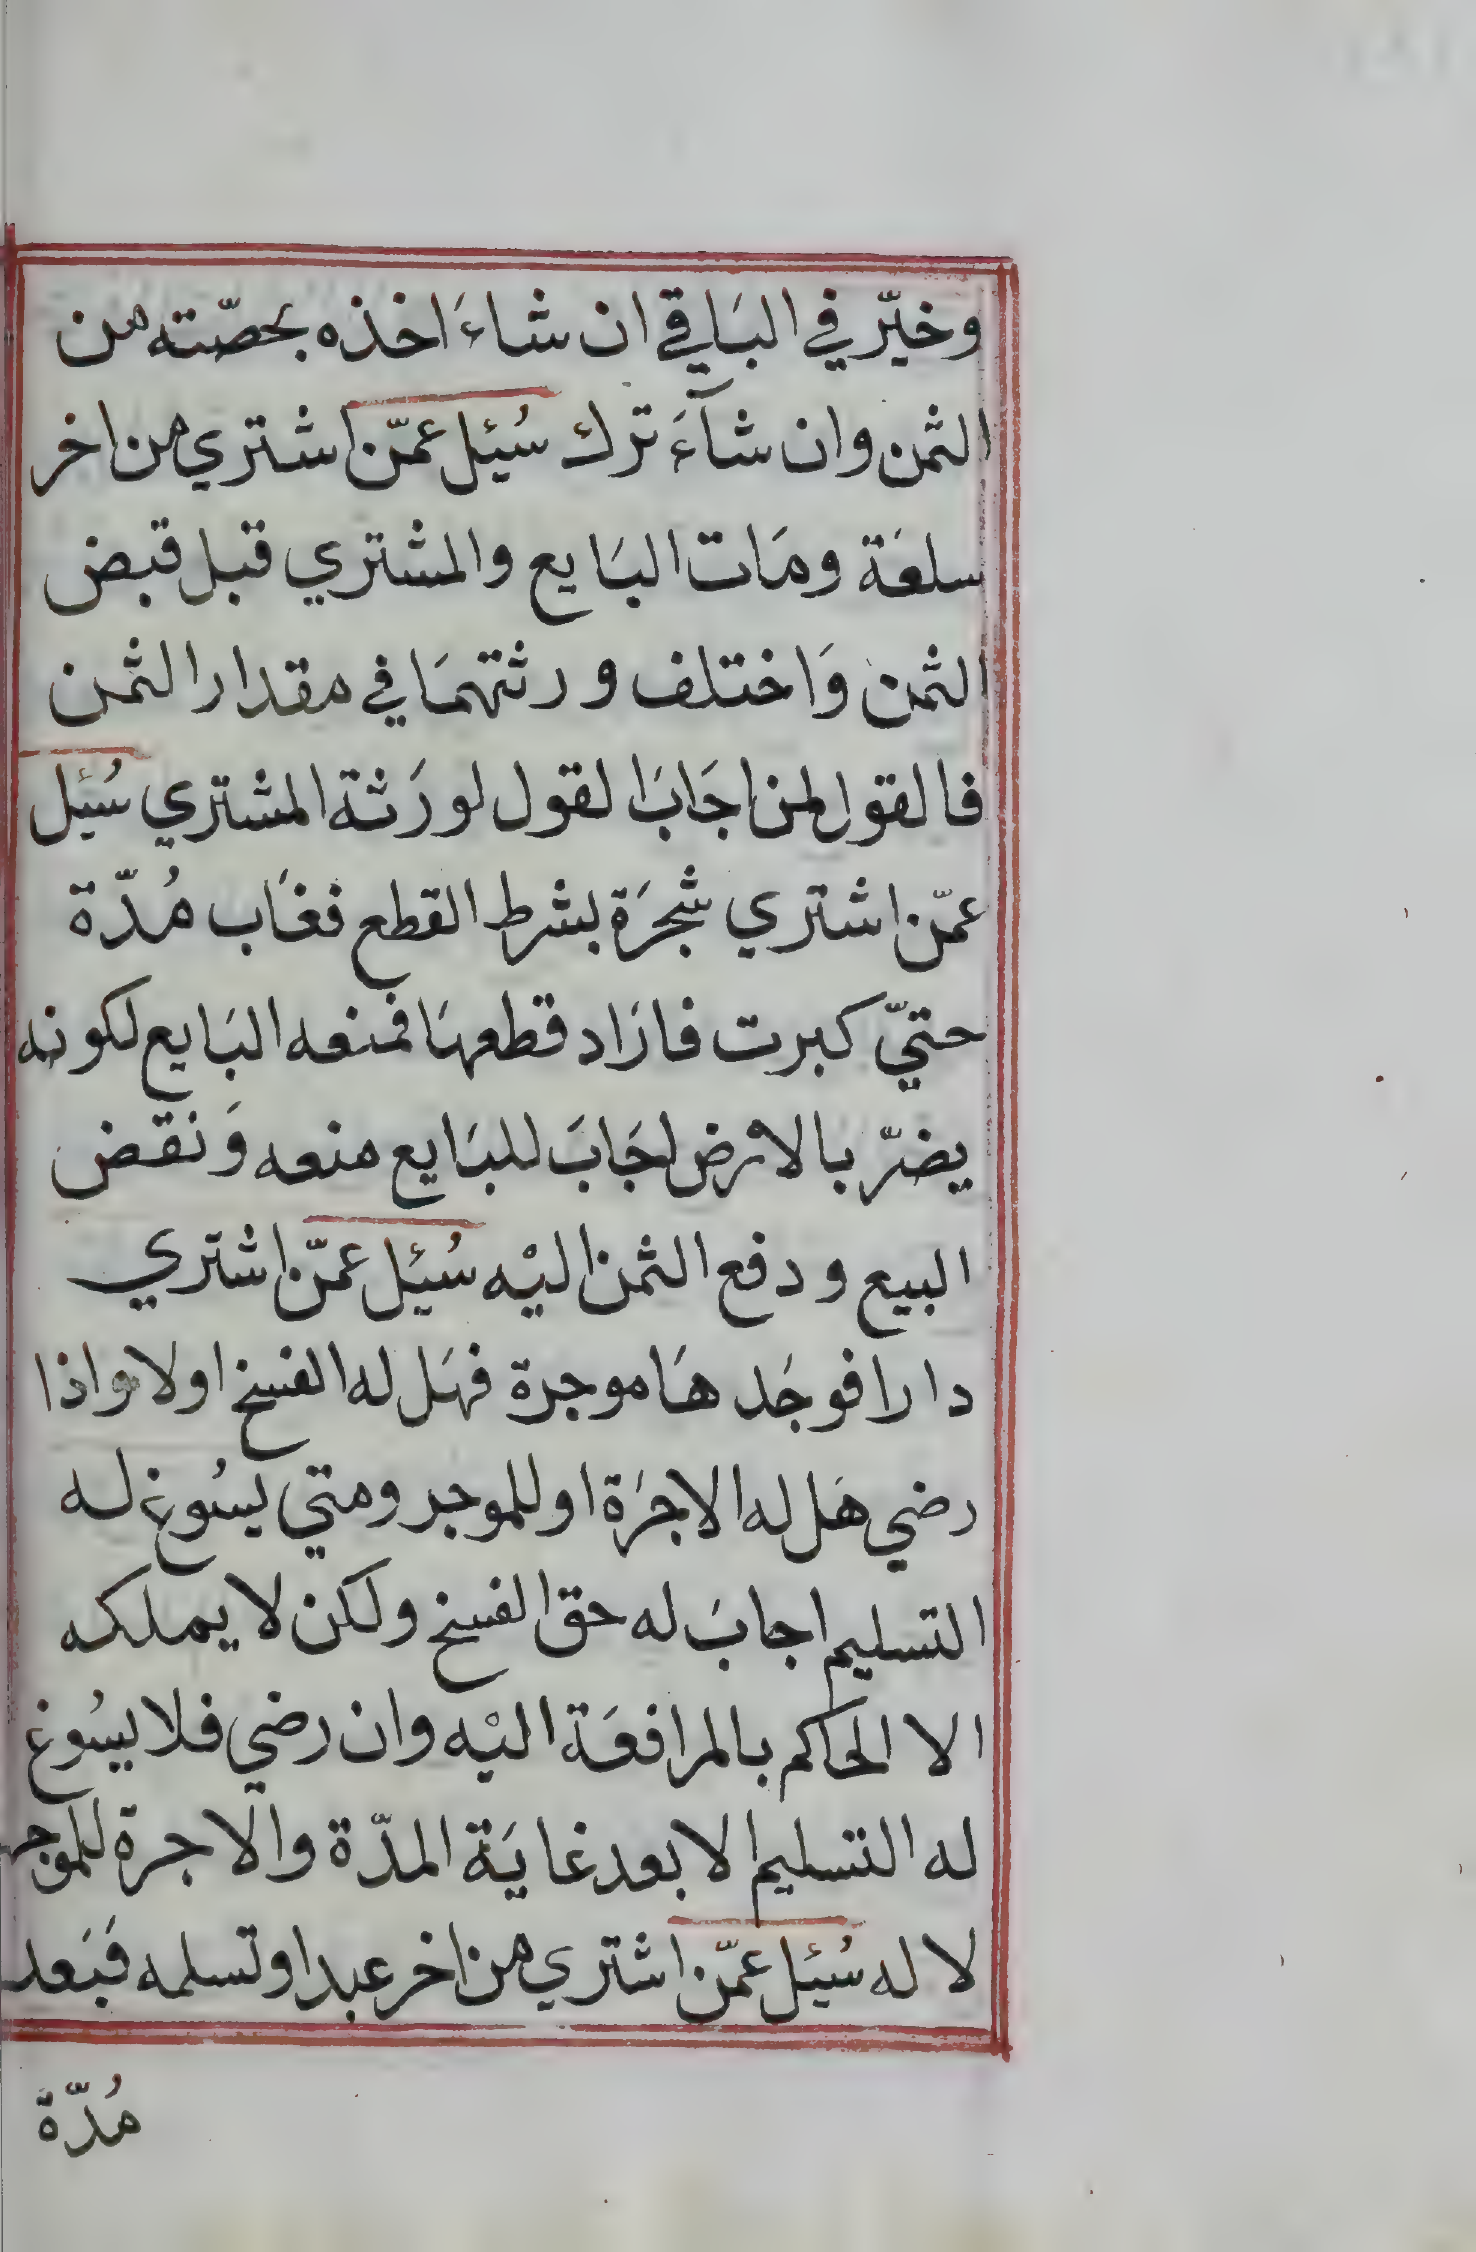 وخيّر في البَاقي ان شاءَ اخذه بحصّته من
الثمن وان شآءَ ترك سُئِل عمّن اشتري من اخر
سلعَة ومَات البَايع والمشتري قبل قبض
الثمن وَاختلف ورثتهمَا في مقدار الثمن
فالقول لمن اجَابَ القول لورَثة المشتري سُئِل
عمّن اشتري شجرَة بشرط القطع فغَاب مُدّة
حتيّ كبرت فارَاد قطعهَا فمنعه البَايع لكونه
يضرّ بالارض اجَابَ للبَايع منعه وَنقض
البيع ودفع الثمن اليْه سُئِل عمّن اشتري
دارا فوجَدهَا موجرة فهَل له الفسخ اولا واذا
رضي هَل له الاجرَة او للموجر ومتي يسُوغ له
التسليم اجابَ له حق الفسخ ولكن لا يملكه
الا الحاكم بالمرافعَة اليْه وان رضي فلا يسُوغ
له التسليم الا بعد غايَة المدّة والاجرة للموجر
لا له سُئِل عمّن اشتري من اخر عبدا وتسلمه فبَعد
مُدّة